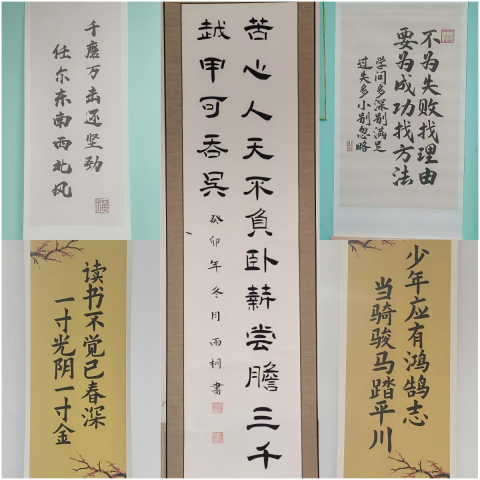 千磨万击还坚劲
任尔东南西北风
苦心人天不負卧薪嘗膽三千
越甲可吞吴
癸卯年冬月雨桐書
不为失败找理由
要为成功找方法
学问多深别满足
过失多小别忽略
读书不觉已春深
一寸光阴一寸金
少年应有鸿鹄志
当骑骏马踏平川